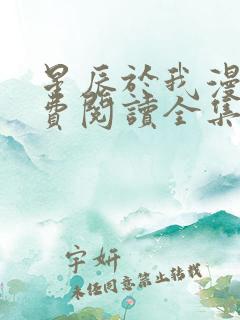 星辰於我漫
費閱讀全集
宇妍
未经同意禁止转载